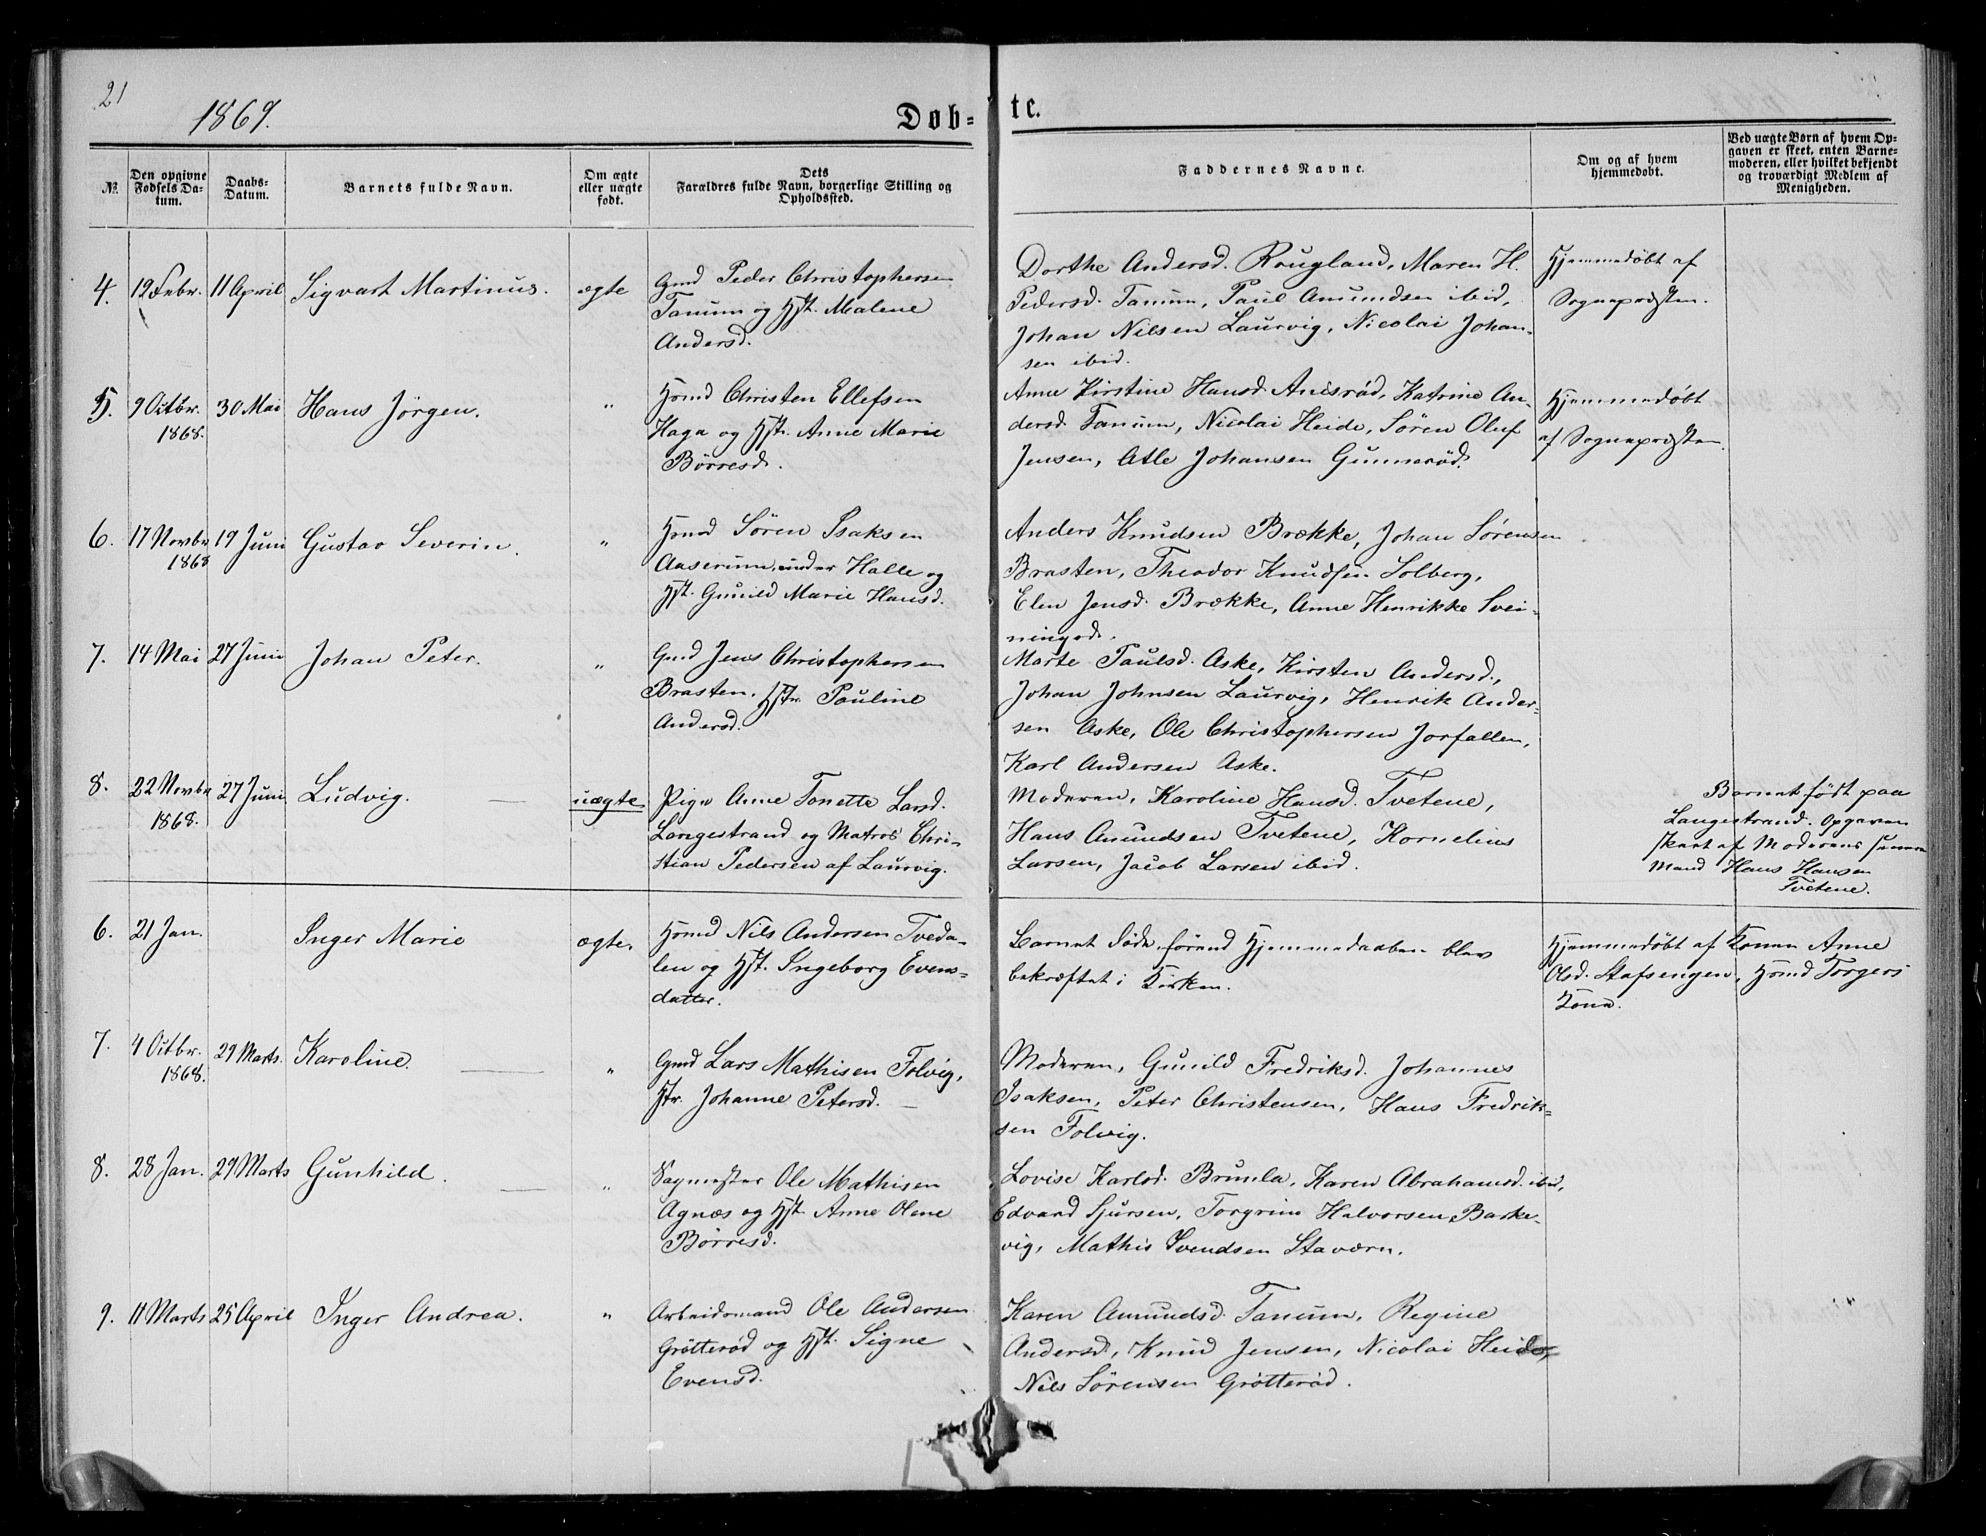 21
1869.
Døb-
te.
№
Den opgivne
Fødsels Da-
tum.
Daabs-
Datum.
Barnets fulde Navn.
Om ægte
eller uægte
født.
Dets
Forældres fulde Navn, borgerlige Stilling og
Opholdssted.
Faddernes Navne.
Om og af hvem
hjemmedøbt.
Ved uægte Børn af hvem Op-
gaven er skeet, enten Barne-
moderen, eller hvilket bekjendt
og troværdigt Medlem af
Menigheden.
4.
19 Febr.
11 April
Sigvart Martinus.
ægte
Gmd Peder Christophersen
Tanum og Hst. Malene
Andersd.
Dorthe Andersd. Rougland, Maren H.
Pedersd. Tanum, Paul Amundsen ibid,
Johan Nilsen Laurvig, Nicolai Johan-
sen ibid.
Hjemmedøbt af
Sognepræsten.
5.
9 Octbr.
1868.
30 Mai
Hans Jørgen.
"
Hsmd Christen Ellefsen
Haga og Hst. Anne Marie
Børresd.
Anne Kirstine Hansd. Anisrød, Katrine An-
dersd. Tanum, Nicolai Heide, Søren Oluf
Jensen, Atle Johansen Gunnerød.
Hjemmedøbt
af Sognepræsten.
6.
17 Novbr
1868
19 Juni
Gustav Severin.
"
Hsmd Søren Isaksen
Aaserum under Halle og
Hst. Gunild Marie Hansd.
Anders Knudsen Brække, Johan Sørensen
Brasten, Theodor Knudsen Solberg,
Elen Jensd. Brække, Anne Henrikke Svei-
ningsd.
7.
14 Mai
27 Juni
Johan Peter.
"
Gmd Jens Christophersen
Brasten. Hstr. Pauline
Andersd.
Marte Paulsd. Aske, Kirsten Andersd.,
Johan Johnsen Laurvig, Henrik Ander-
sen Aske, Ole Christophersen Jorfallen,
Karl Andersen Aske.
8.
22 Novbr
1868.
27 Juni
Ludvig.
uægte
Pige Anne Tonette Larsd.
Langestrand og Matros Chri-
stian Pedersen af Laurvig.
Moderen, Karoline Hansd. Tvetene,
Hans Amundsen Tvetene, Kornelius
Larsen, Jacob Larsen ibid.
Barnet født paa
Langestrand. Opgaven
skeet af Moderens
Mand Hans Hansen
Tvetene.
6.
21 Jan.
Inger Marie
ægte.
Hsmd Nils Andersen Tveda-
len og Hst. Ingeborg Evens-
datter.
Barnet døde, førend Hjemmedaaben blev
bekræftet i Kirken.
Hjemmedøbt af Konen Anne
Olsd. Stafsengen, Hsmd Torgers
Kone.
7.
4 Octbr.
1868.
29 Marts.
Karoline.
"
Gmd Lars Mathisen Folvig,
Hstr. Johanne Petersd.
Moderen, Gunild Fredriksd. Johannes
Isaksen, Peter Christensen, Hans Fredrik-
sen Folvig.
8.
28 Jan.
29 Marts
Gunhild.
"
Sagmester Ole Mathisen
Agnæs og Hst. Anne Olene
Børresd.
Lovise Karlsd. Brunla, Karen Abrahamsd. ibid,
Edvard Sjursen, Torgrim Halvorsen Barke-
vig, Mathis Svendsen Staværn.
9.
11 Marts
25 April
Inger Andrea.
"
Arbeidsmand Ole Andersen
Grøtterød og Hst. Signe
Evensd.
Karen Amundsd. Tanum, Regine
Andersd, Knud Jensen, Nicolai Heide,
Nils Sørensen Grøtterød.